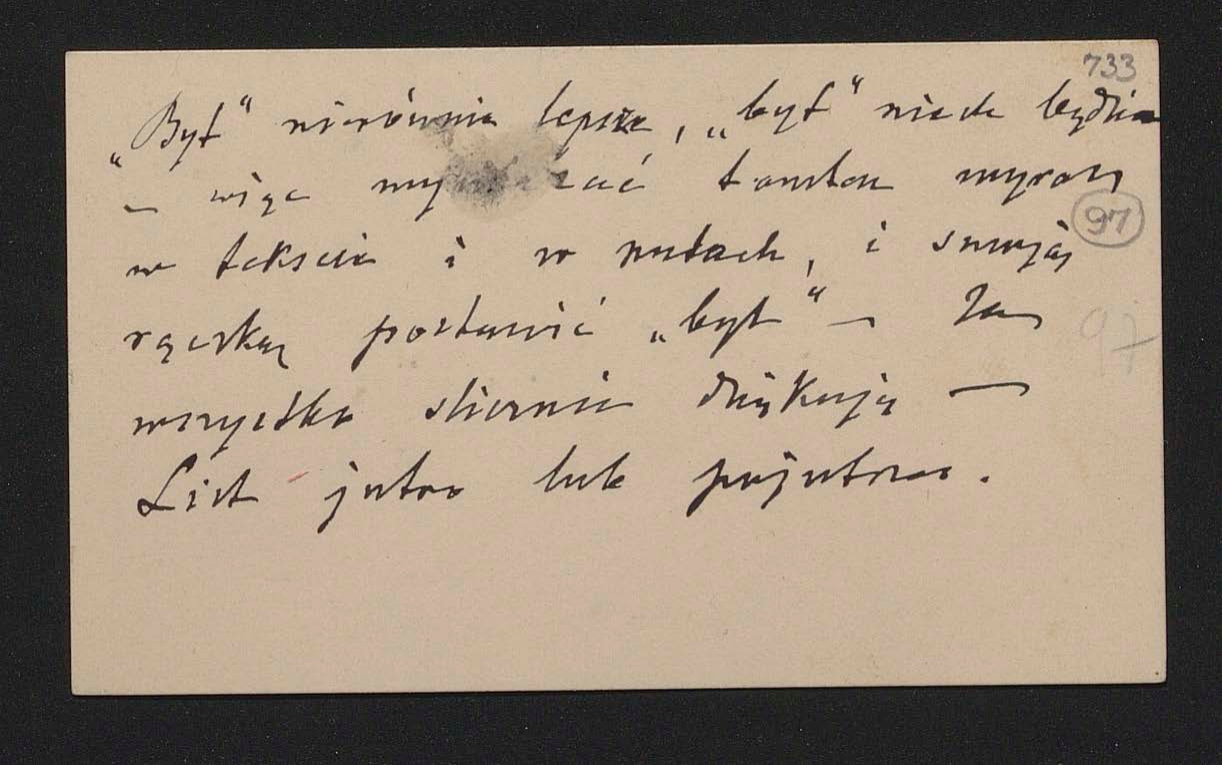 733
„Byt“ nierównie lepsze, „byt“ niech będzie
– więc tamten wyraz
97
w tekscie i w nutach, i swoją
rączką postawić „byt“ — Za
97
wszystko ślicznie dziękuję —
List jutro lub pojutrze.